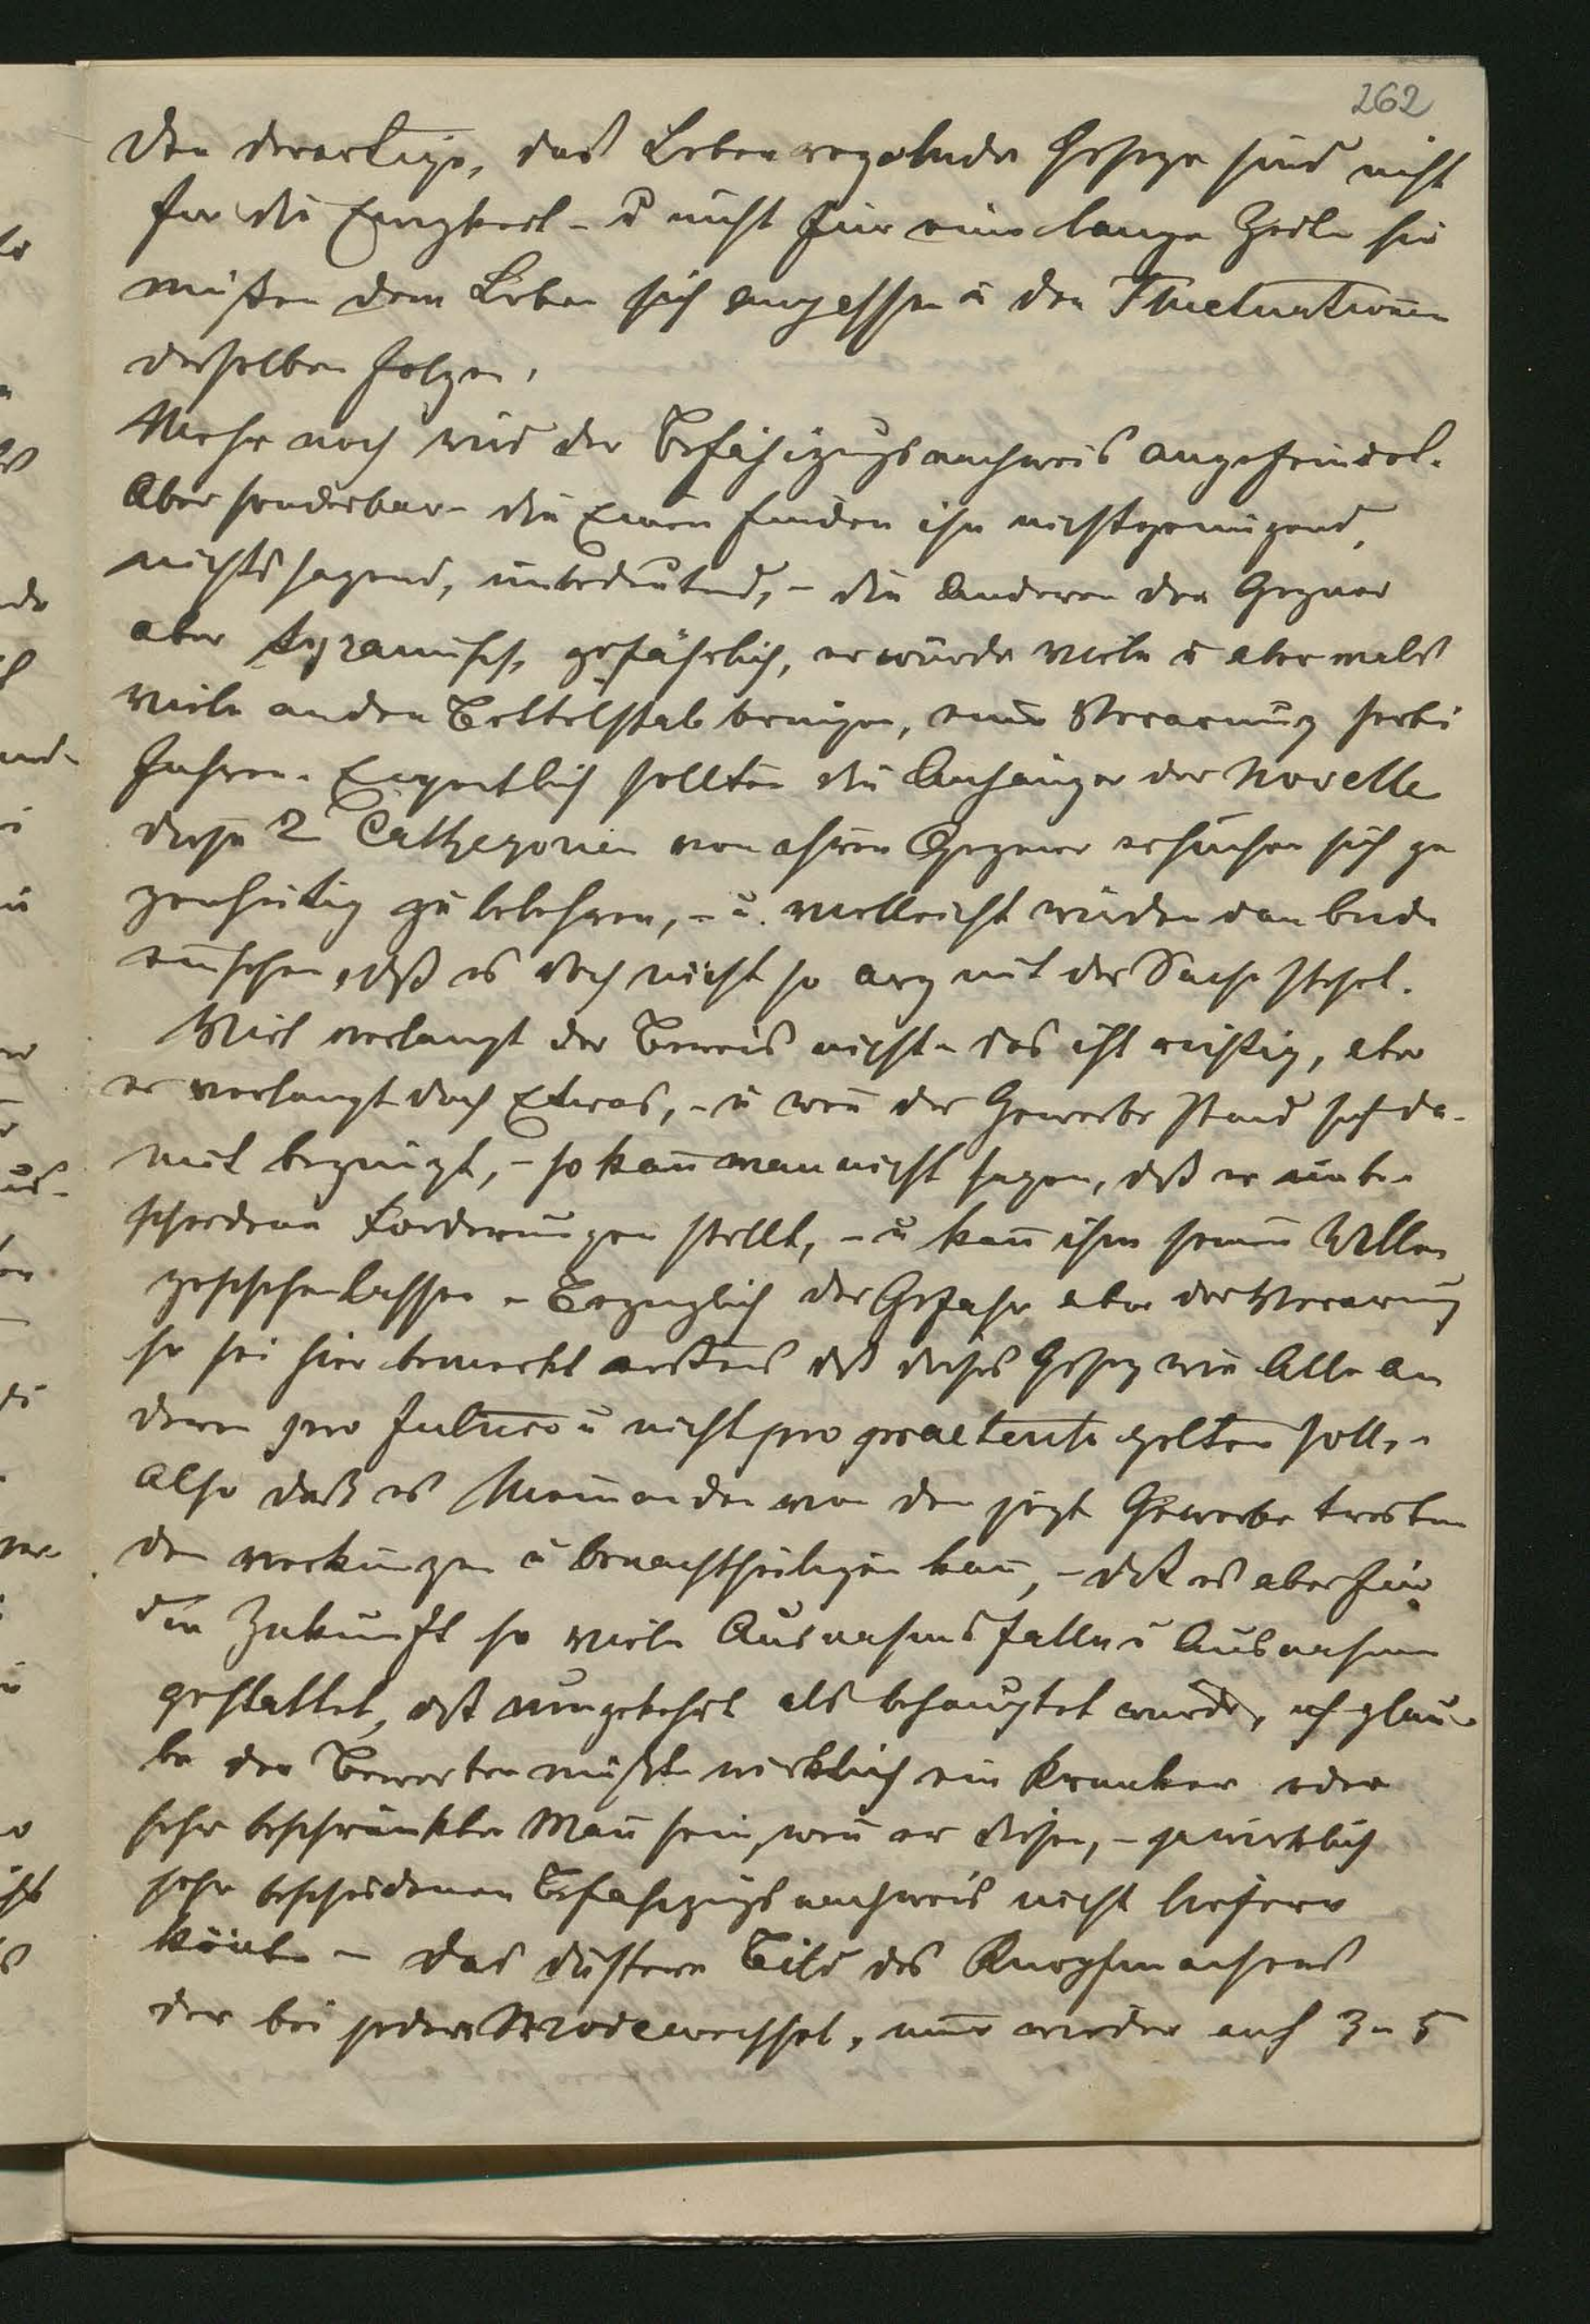 262
den derartige, das Leben regelnde Gesetze sind nicht
für die Ewigkeit - u nicht für eine lange Zeile sie
müßen dem Leben sich anpassen u den Fluctuationen
desselben folgen.
Mehr noch wird der Befähigugsnachweis angefeindet.
Aber sonderbar - die Einen finden ihn nichtgenügend,
nichtssagend, unbedeutend, - die Anderen der Gegner
aber tyranisch, gefährlich, er würde viele u abermals
viele an den Bettelstab bringen, eine Verarmung herbei
führen. Eigentlich sollten die Anhänger der Novelle
diese 2 Cathegorien von ihren Gegner ersuchen sich ge
genseitig zu belehren, - u. vielleicht würden dan beide
einsehen, daß es doch nicht so arg mit der Sache stehet.
Viel verlangt der Beweis nicht - das ist richtig, aber
er verlangt doch Etwas, - u wen der Gewerbe stand sich da-
mit begnügt, - so kan man nicht sagen, daß er unbe-
scheidene Forderungen stellt, - u kan ihm seinen Willen
geschehen lassen - Bezuglich der Gefahr aber der Verarmug
so sei hier bemerkt erstens daß dieses Gesetz wie Alle an
deren pro futuro u nicht pro praeterito gelten soll, -
Also daß es Niemanden von den jetzt Gewerbe treiben
den verkürzen u benachtheiligen kan, - daß es aber für
die Zukunft so viele Ausnahmsfälle u Ausnahmen
gestattet, daß umgekehrt als behauptet wurde, ich glau-
be der Bewerber müßte wirklich ein Kranker oder
sehr beschränkter Man sein, wen er diesen, - ja wirklich
sehr bescheidenen Befahigugs nachweis nicht liefern
könte - Das düstere Bild des Knopfmachers
der bei jedem Modewechsel, imer wieder auf 3 - 5